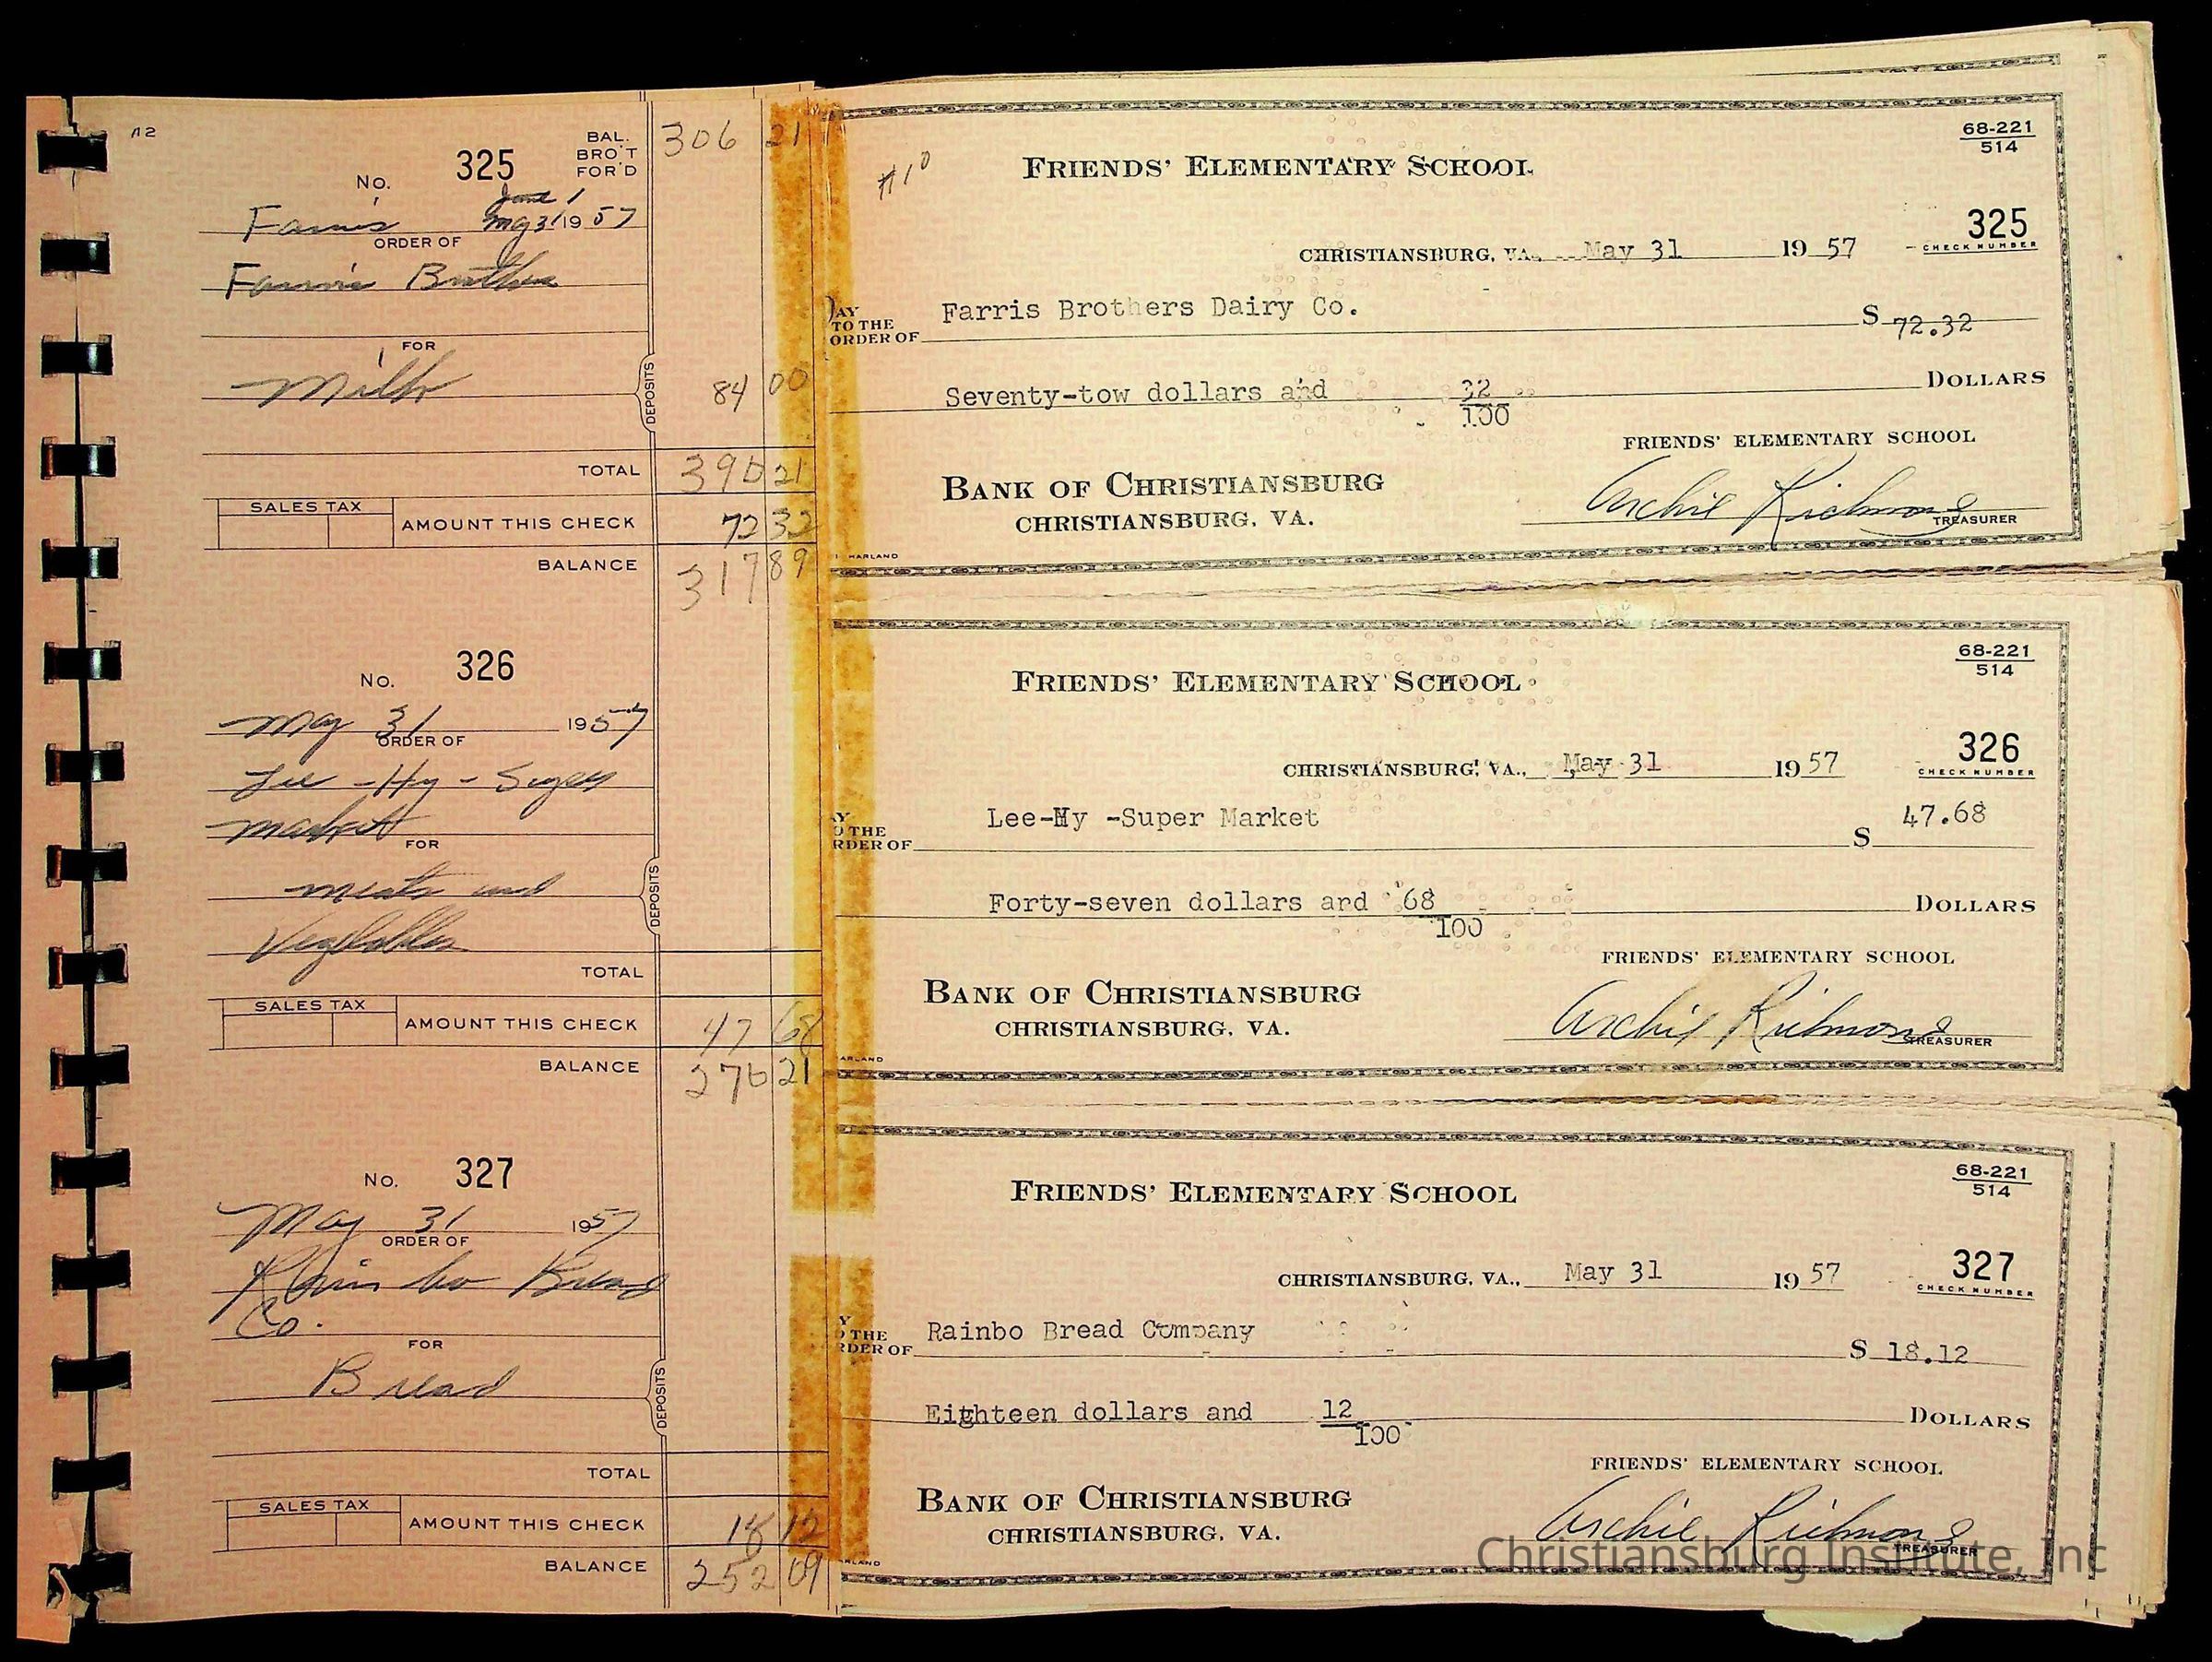 No. 325
BAL. BRO'T FOR'D 306 21
June 1
Farris May 31 1957
ORDER OF
Farris Brothers
FOR
Milk
DEPOSITS 84 00
TOTAL 390 21
SALES TAX
AMOUNT THIS CHECK 72 32
BALANCE 317 89
No. 326
May 31 1957
ORDER OF
Lee-Hy-Super
Market
FOR
meats and
Vegetables
DEPOSITS
TOTAL
SALES TAX
AMOUNT THIS CHECK 47 68
BALANCE 270 21
No. 327
May 31 1957
ORDER OF
Rainbo Bread
Co.
FOR
Bread
DEPOSITS
TOTAL
SALES TAX
AMOUNT THIS CHECK 18 12
BALANCE 252 09
68-221
514
FRIENDS' ELEMENTARY SCHOOL
325
CHECK NUMBER
CHRISTIANSBURG, VA., May 31 19 57
PAY TO THE ORDER OF Farris Brothers Dairy Co. $ 72.32
Seventy-tow dollars and 32/100 DOLLARS
FRIENDS' ELEMENTARY SCHOOL
BANK OF CHRISTIANSBURG
CHRISTIANSBURG, VA.
Archie Richmond
TREASURER
HARLAND
68-221
514
FRIENDS' ELEMENTARY SCHOOL
326
CHECK NUMBER
CHRISTIANSBURG, VA., May 31 19 57
Lee-Hy -Super Market $ 47.68
THE
ORDER OF
Forty-seven dollars and 68/100 DOLLARS
FRIENDS' ELEMENTARY SCHOOL
BANK OF CHRISTIANSBURG
CHRISTIANSBURG, VA.
Archie Richmond
TREASURER
68-221
514
FRIENDS' ELEMENTARY SCHOOL
327
CHECK NUMBER
CHRISTIANSBURG, VA., May 31 19 57
THE
ORDER OF Rainbo Bread Company $ 18.12
Eighteen dollars and 12/100 DOLLARS
FRIENDS' ELEMENTARY SCHOOL
BANK OF CHRISTIANSBURG
CHRISTIANSBURG, VA.
Archie Richmond
TREASURER
Christiansburg Institute, Inc